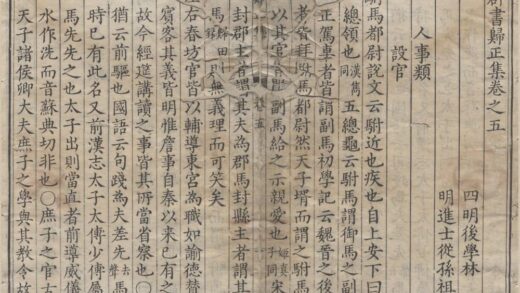 書歸正集卷之五
四明後學林
明進士從孫祖
人事類
設官
駙馬都尉說文云駙近也疾也自上安下曰
總領也漢雋同五總龜云駙馬謂御馬之副
正駕車者皆謂副馬初學記云魏晉之後
者皆拜駙馬都尉然天子壻而謂之駙馬
以其官副馬給之示親愛也真子同宋
封郡主者謂其夫為郡馬封縣主者謂其
馬則無義理而可笑矣
卷五
左右春坊官皆以輔導東宮為職如諭德替
賓客其義皆明惟詹事自秦以來已有之
故今經筵講讀之事皆其所當省察也〇
猶云前驅也國語云句踐為夫差先去聲馬
時已有此名又前漢志太子太傅少傅屬
馬先先之也太子出則當直者前導威儀
水作洗而音蘇典切非也〇庶子之官古
天子諸侯卿大夫庶子之學與其教令故